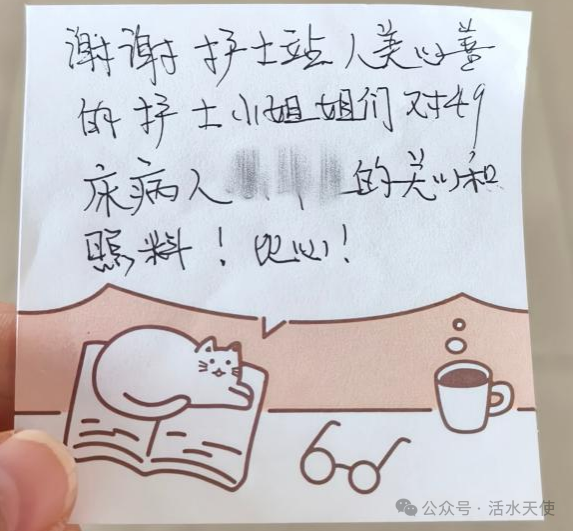 谢谢护士站人美心善
的护士小姐姐们对49
床病人的关心和
照料！比心！
公众号·活水天使